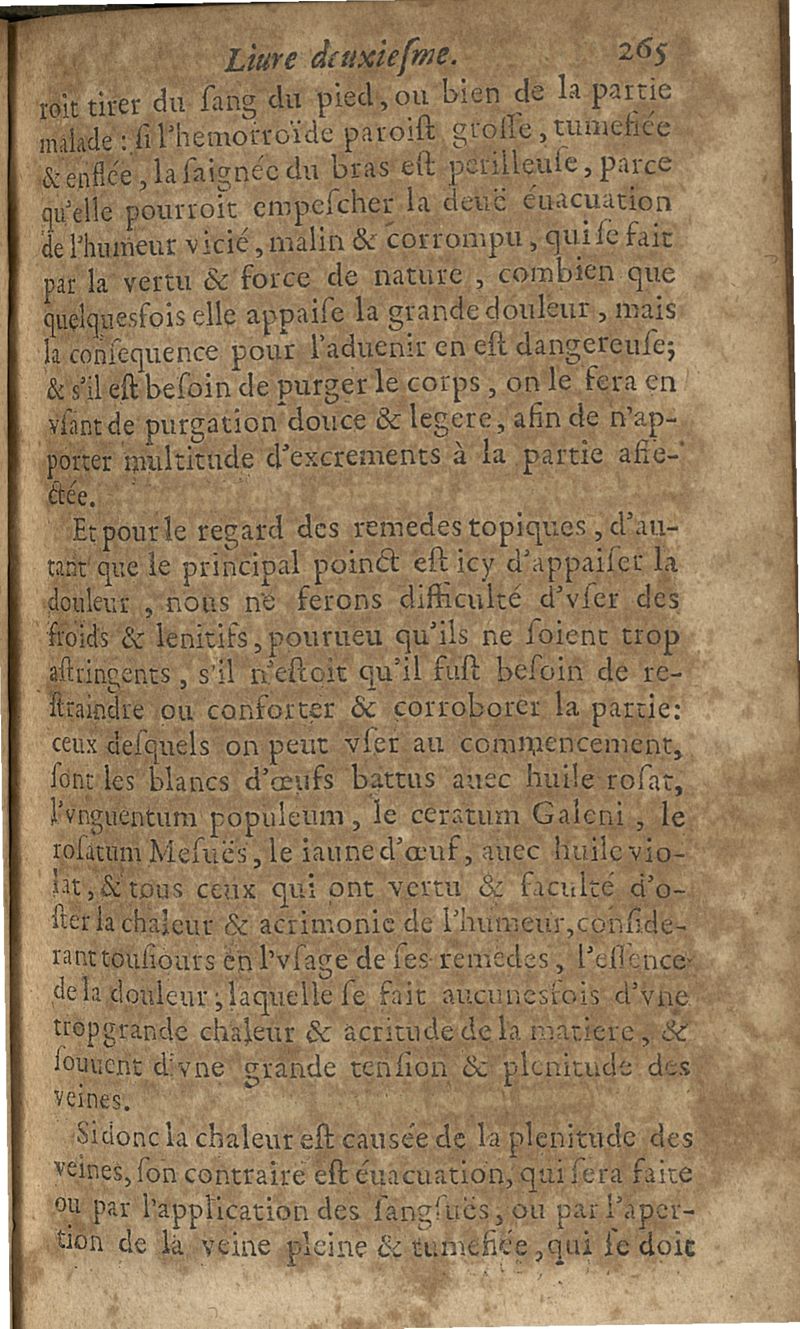 Liure deuxieſme. 265
roit tirer du ſang du pied, ou bien de la partie
malade : ſi l'hemorroïde paroiſt groſſe, tumefiée
& enflée, la ſaignée du bras eſt perilleuſe, parce
qu'elle pourroit empeſcher la deuë éuacuation
de l'humeur vicié, malin & corrompu, qui ſe fait
par la vertu & force de nature, combien que
quelquesfois elle appaiſe la grande douleur, mais
la conſequence pour l'aduenir en eſt dangereuſe;
& s'il eſt beſoin de purger le corps, on le fera en
vſant de purgation douce & legere, afin de n'ap-
porter multitude d'excrements à la partie affe-
ctée.
Et pour le regard des remedes topiques, d'au-
tant que le principal poinct eſt icy d'appaiſer la
douleur, nous ne ferons difficulté d'vſer des
froids & lenitifs, pourueu qu'ils ne ſoient trop
aſtringents, s'il n'eſtoit qu'il fuſt beſoin de re-
ſtraindre ou conforter & corroborer la partie:
ceux deſquels on peut vſer au commencement,
ſont les blancs d'œufs battus auec huile roſat,
l'vnguentum populeum, le ceratum Galeni, le
roſatum Meſuës, le iaune d'œuf, auec huile vio-
lat, & tous ceux qui ont vertu & faculté d'o-
ſter la chaleur & acrimonie de l'humeur, conſide-
rant touſiours en l'vſage de ſes remedes, l'eſſence
de la douleur; laquelle ſe fait aucunesfois d'vne
trop grande chaleur & acritude de la matiere, &
ſouuent d'vne grande tenſion & plenitude des
veines.
Si donc la chaleur eſt causée de la plenitude des
veines, ſon contraire eſt éuacuation, qui ſera faite
ou par l'application des ſangſuës, ou par l'aper-
tion de la veine pleine & tumefiée, qui ſe doit